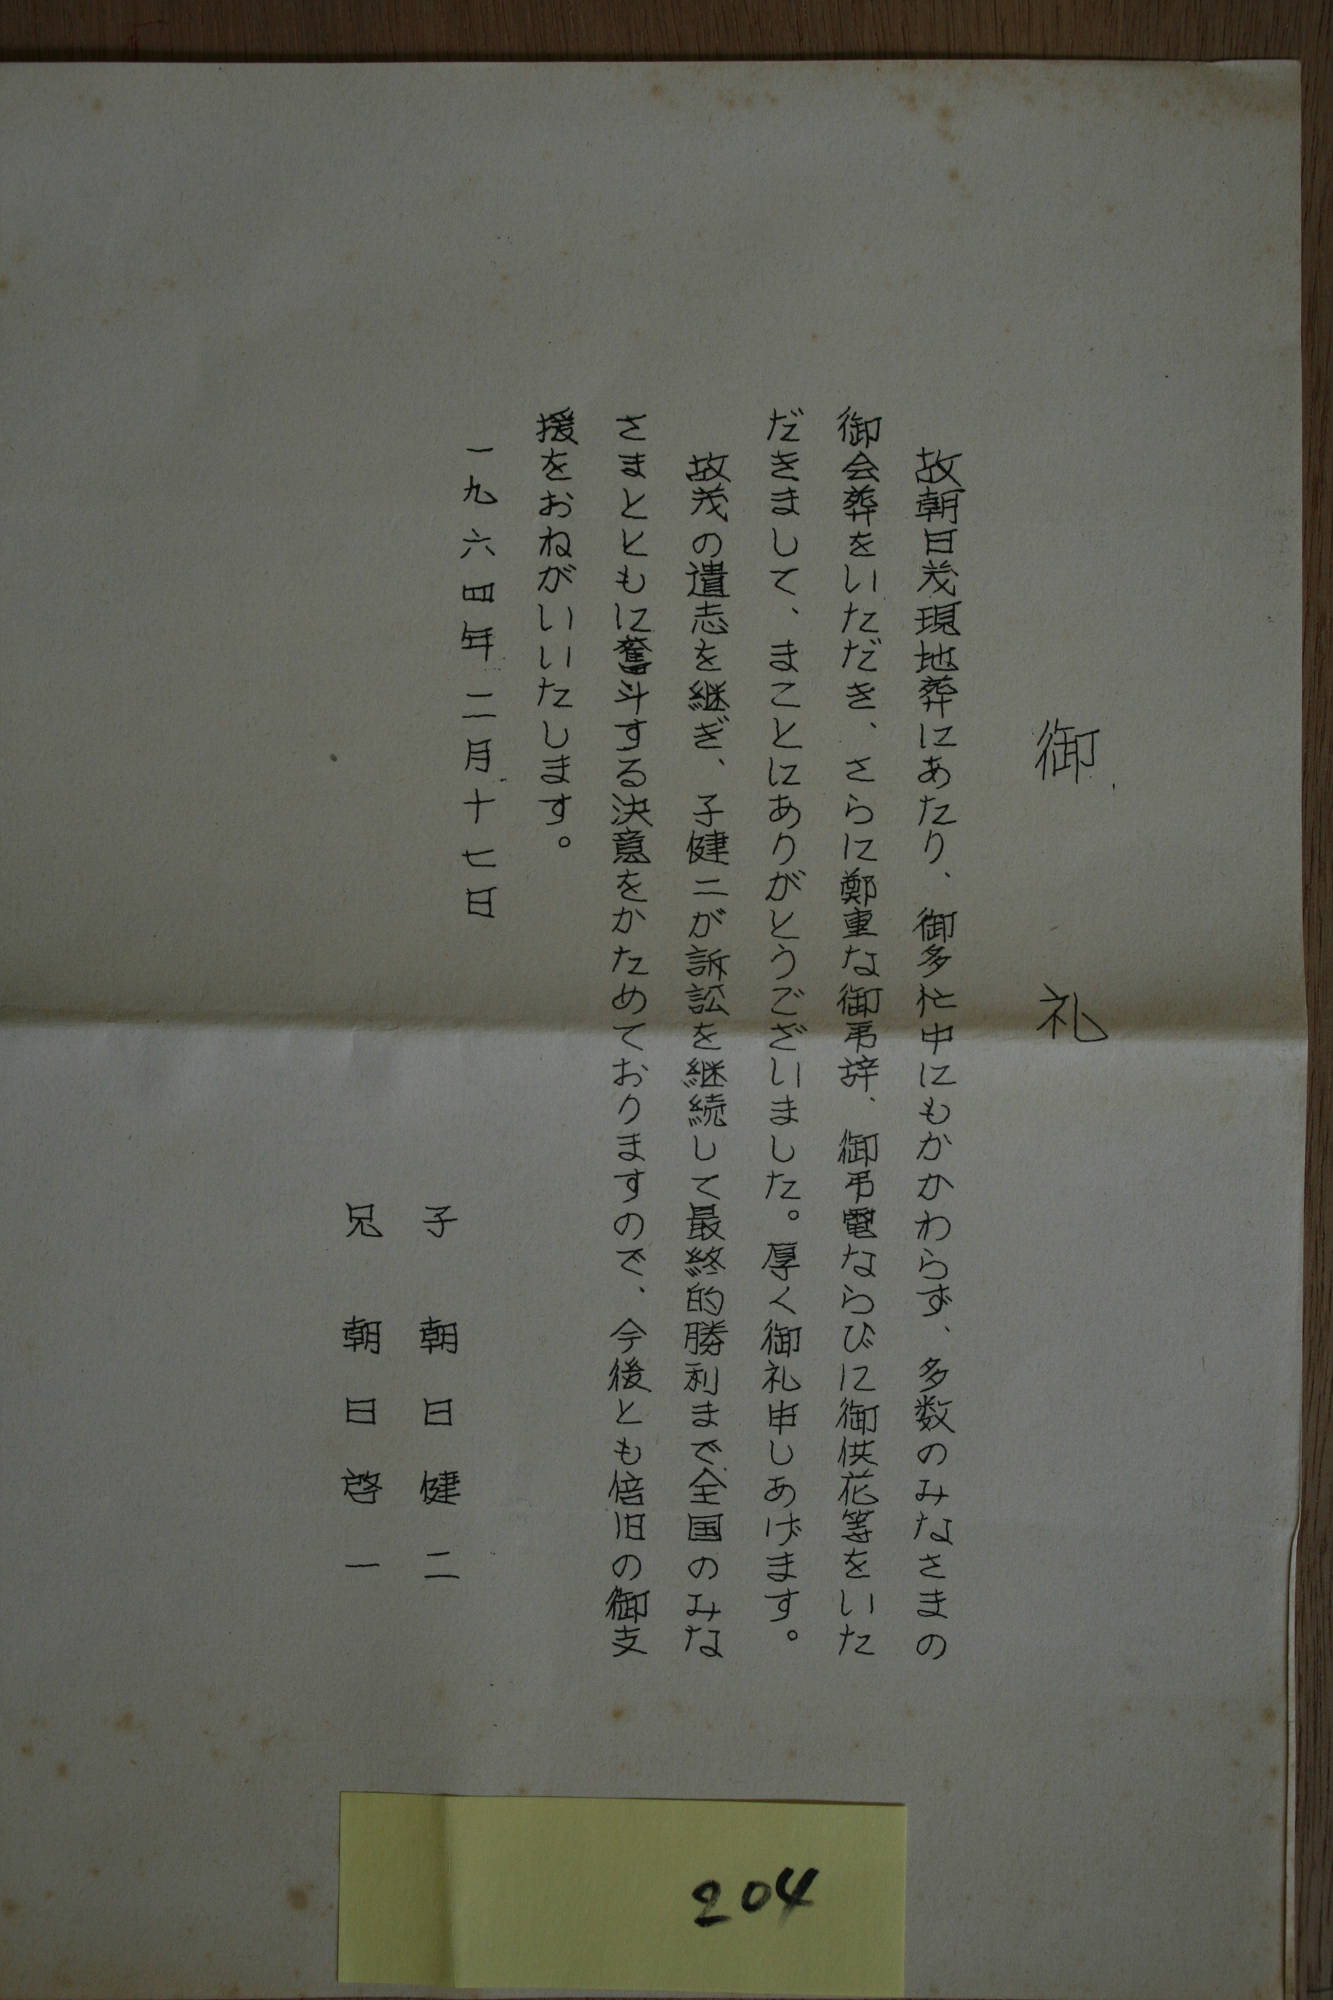 御礼
故朝日茂現地葬にあたり、御多忙中にもかかわらず、多数のみなさまの
御会葬をいただき、さらに鄭重な御弔辞、御弔電ならびに御供花等をいた
だきまして、まことにありがとうございました。厚く御礼申しあげます。
故茂の遺志を継ぎ、子健二が訴訟を継続して最終的勝利まで全国のみな
さまとともに奮斗する決意をかためておりますので、今後とも倍旧の御支
援をおねがいいたします。
一九六四年二月十七日
子 朝日健二
兄 朝日啓一
204